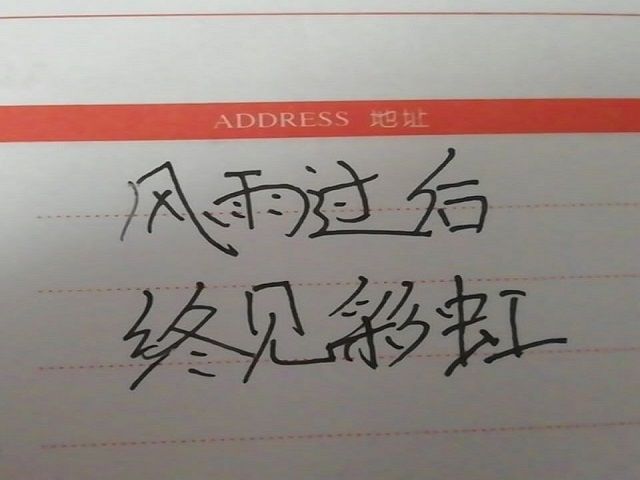 ADDRESS 地址
风雨过后
终见彩虹